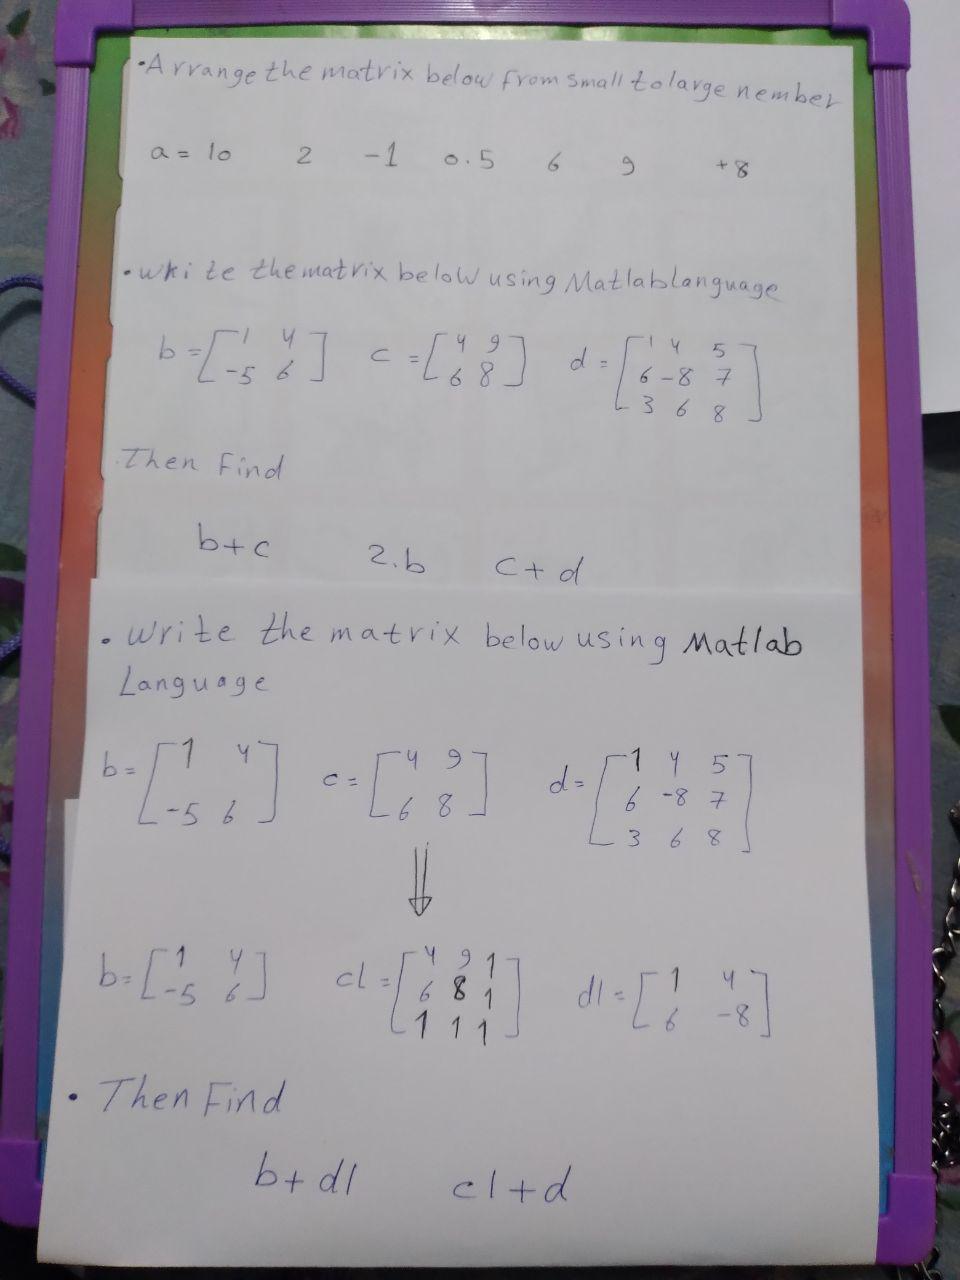 •Arrange the matrix below from small to large nember
a = 10 2 -1 0.5 6 9 +8
• wki te the matrix below using Matlab language
b = [ 1 4 ] c = [ 4 9 ] d = [ 1 4 5
-5 6 6 8 6 -8 7
3 6 8 ]
Then Find
b+c 2.b c+d
• Write the matrix below using Matlab
Language
b = [ 1 4 c = [ 4 9 ] d = [ 1 4 5
-5 6 ] 6 8 6 -8 7
3 6 8 ]
⇓
b = [ 1 4 ] c1 = [ 4 9 1 d1 = [ 1 4
-5 6 6 8 1 6 -8 ]
1 1 1 ]
• Then Find
b+d1 c1+d